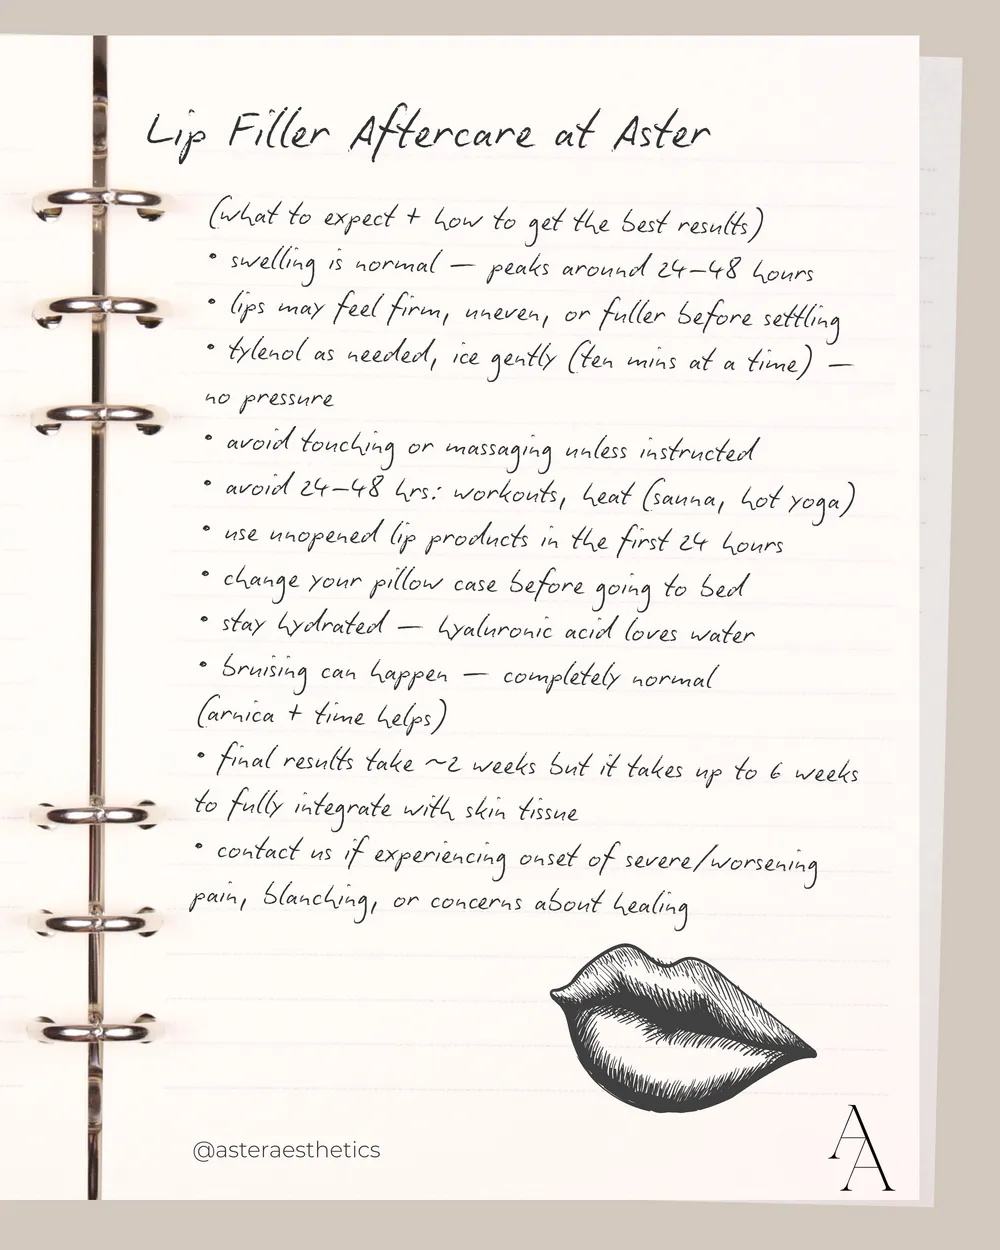 Lip Filler Aftercare at Aster
(what to expect + how to get the best results)
• swelling is normal — peaks around 24–48 hours
• lips may feel firm, uneven, or fuller before settling
• tylenol as needed, ice gently (ten mins at a time) —
no pressure
• avoid touching or massaging unless instructed
• avoid 24–48 hrs: workouts, heat (sauna, hot yoga)
• use unopened lip products in the first 24 hours
• change your pillow case before going to bed
• stay hydrated — hyaluronic acid loves water
• bruising can happen — completely normal
(arnica + time helps)
• final results take ~2 weeks but it takes up to 6 weeks
to fully integrate with skin tissue
• contact us if experiencing onset of severe/worsening
pain, blanching, or concerns about healing
@asteraesthetics
AA